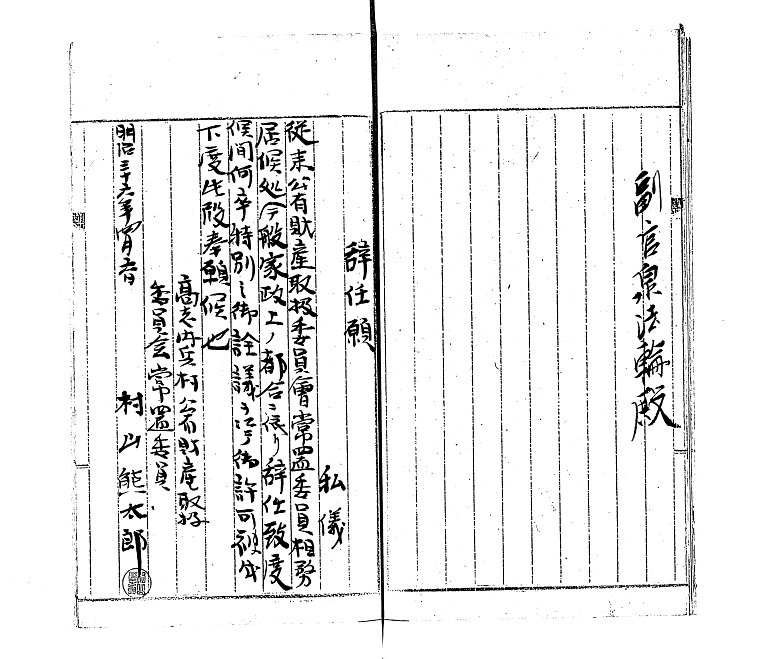 副官泉法輪殿
辞任願
私儀
従来公有財産取扱委員會常置委員相務
居候処今般家政上ノ都合ニ依リ辞任致度
候間何卒特別之御詮議ヲ以テ御許可被成
下度此段奉願候也
高志内兵村公有財産取扱
委員会常置委員
明治三十六年四月
村山熊太郎